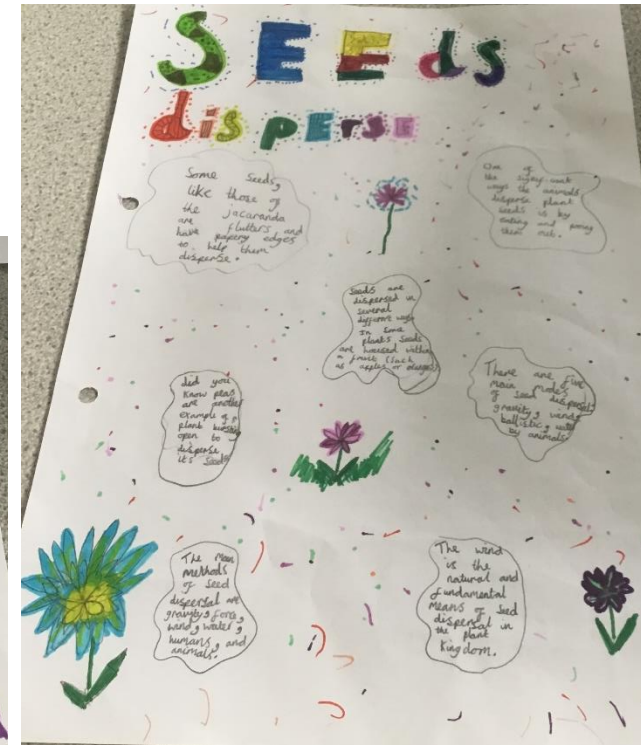 SEEds
disperse
Some seeds,
like those of
the jacaranda
are flutters and
have papery edges
to help them
disperse.
One of
the ways the animals
disperse plant
seeds is by
eating and
them out.
Seeds are
dispersed in
several
different ways
In some
plants seeds
are housed within
a fruit (such
as apples or oranges)
did you
know peas
are another
example of a
plant bursting
open to
disperse
it's seeds
There are five
main modes
of seed dispersal
gravity, wind,
ballistic, water
by animals.
The main
methods
of seed
dispersal are
gravity, force,
wind, water,
humans, and
animals.
The wind
is the
natural and
fundamental
means of seed
dispersal in
the plant
kingdom.